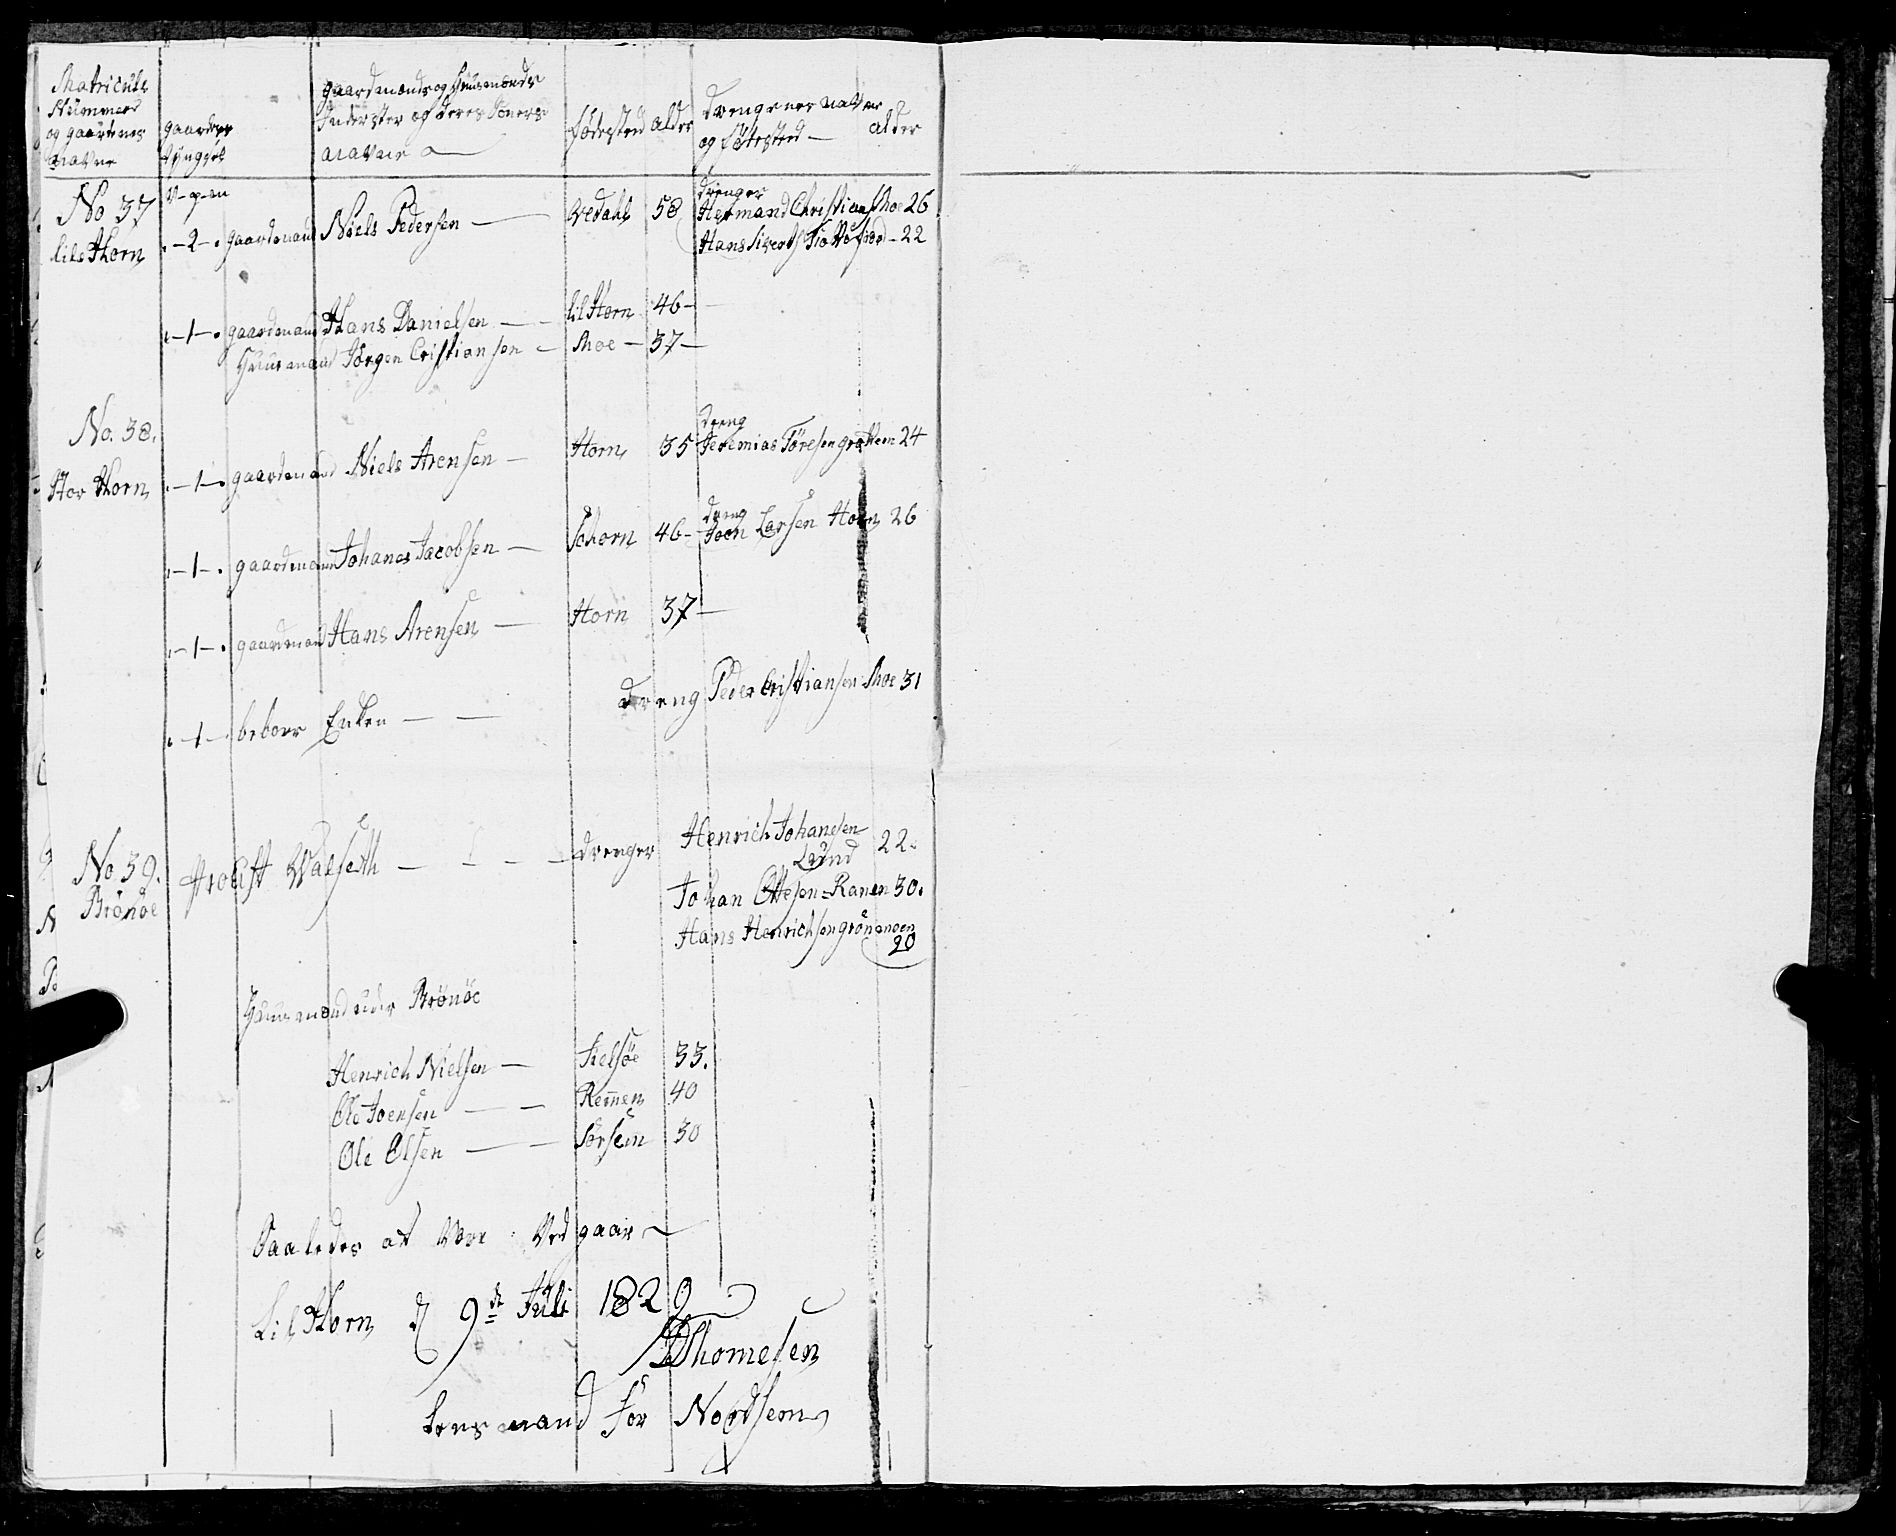 Matriculs
Nummer
og gaardenes
navne
gaardens
tyngsel
gaardmænds og Huusmænds
Inderster og deres Søners
navne
fødested
alder
drengenes navne
og føstested
alder
V - p - m
No 37
lils Horn
- 2 - gaardmand Niels Pedersen — Vedahl 58
drenger
Hermand Christian Moe 26
Hans Sivert
- 22
- 1 - gaardmand Hans Danielsen — lil Horn 46 -
Huusmand Jörgen Cristiansen - Moe - 37 -
No. 38.
Stor Horn
- 1 - gaardmand Niels Arensen — Horn 35
dreng
Jeremias Töresen grattem 24
- 1 - gaardmand Johanes Jacobsen — Sohorn 46 -
dreng
Joen Larsen Horn 26
- 1 - gaardmand Hans Arensen — Horn 37 -
dreng Peder Cristiansen Moe 31
- 1 - beboer Enken — —
No 39.
Brönöe
Probst Walseth — — — drenger
Henrich Johansen
Lund 22.
Johan Ottesen - Ranen 30.
Hans Henrichsen grönmoen
20
Huusmænd under Brönöe
Henrich Nielsen — Sielsöe 33.
Ole Joensen — — Remen 40
Ole Olsen — — Sörsem 30
Saaledes at være Vedgaar
Lil Horn d 9de Juli 1829
Thomesen
Lensmand for Nordsem